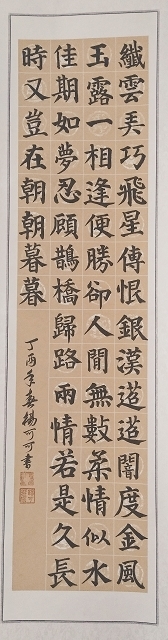 纖雲弄巧飛星傳恨銀漢迢迢闇度金風
玉露一相逢便勝卻人間無數柔情似水
佳期如夢忍顧鵲橋歸路兩情若是久長
時又豈在朝朝暮暮
丁酉年春楊可可書